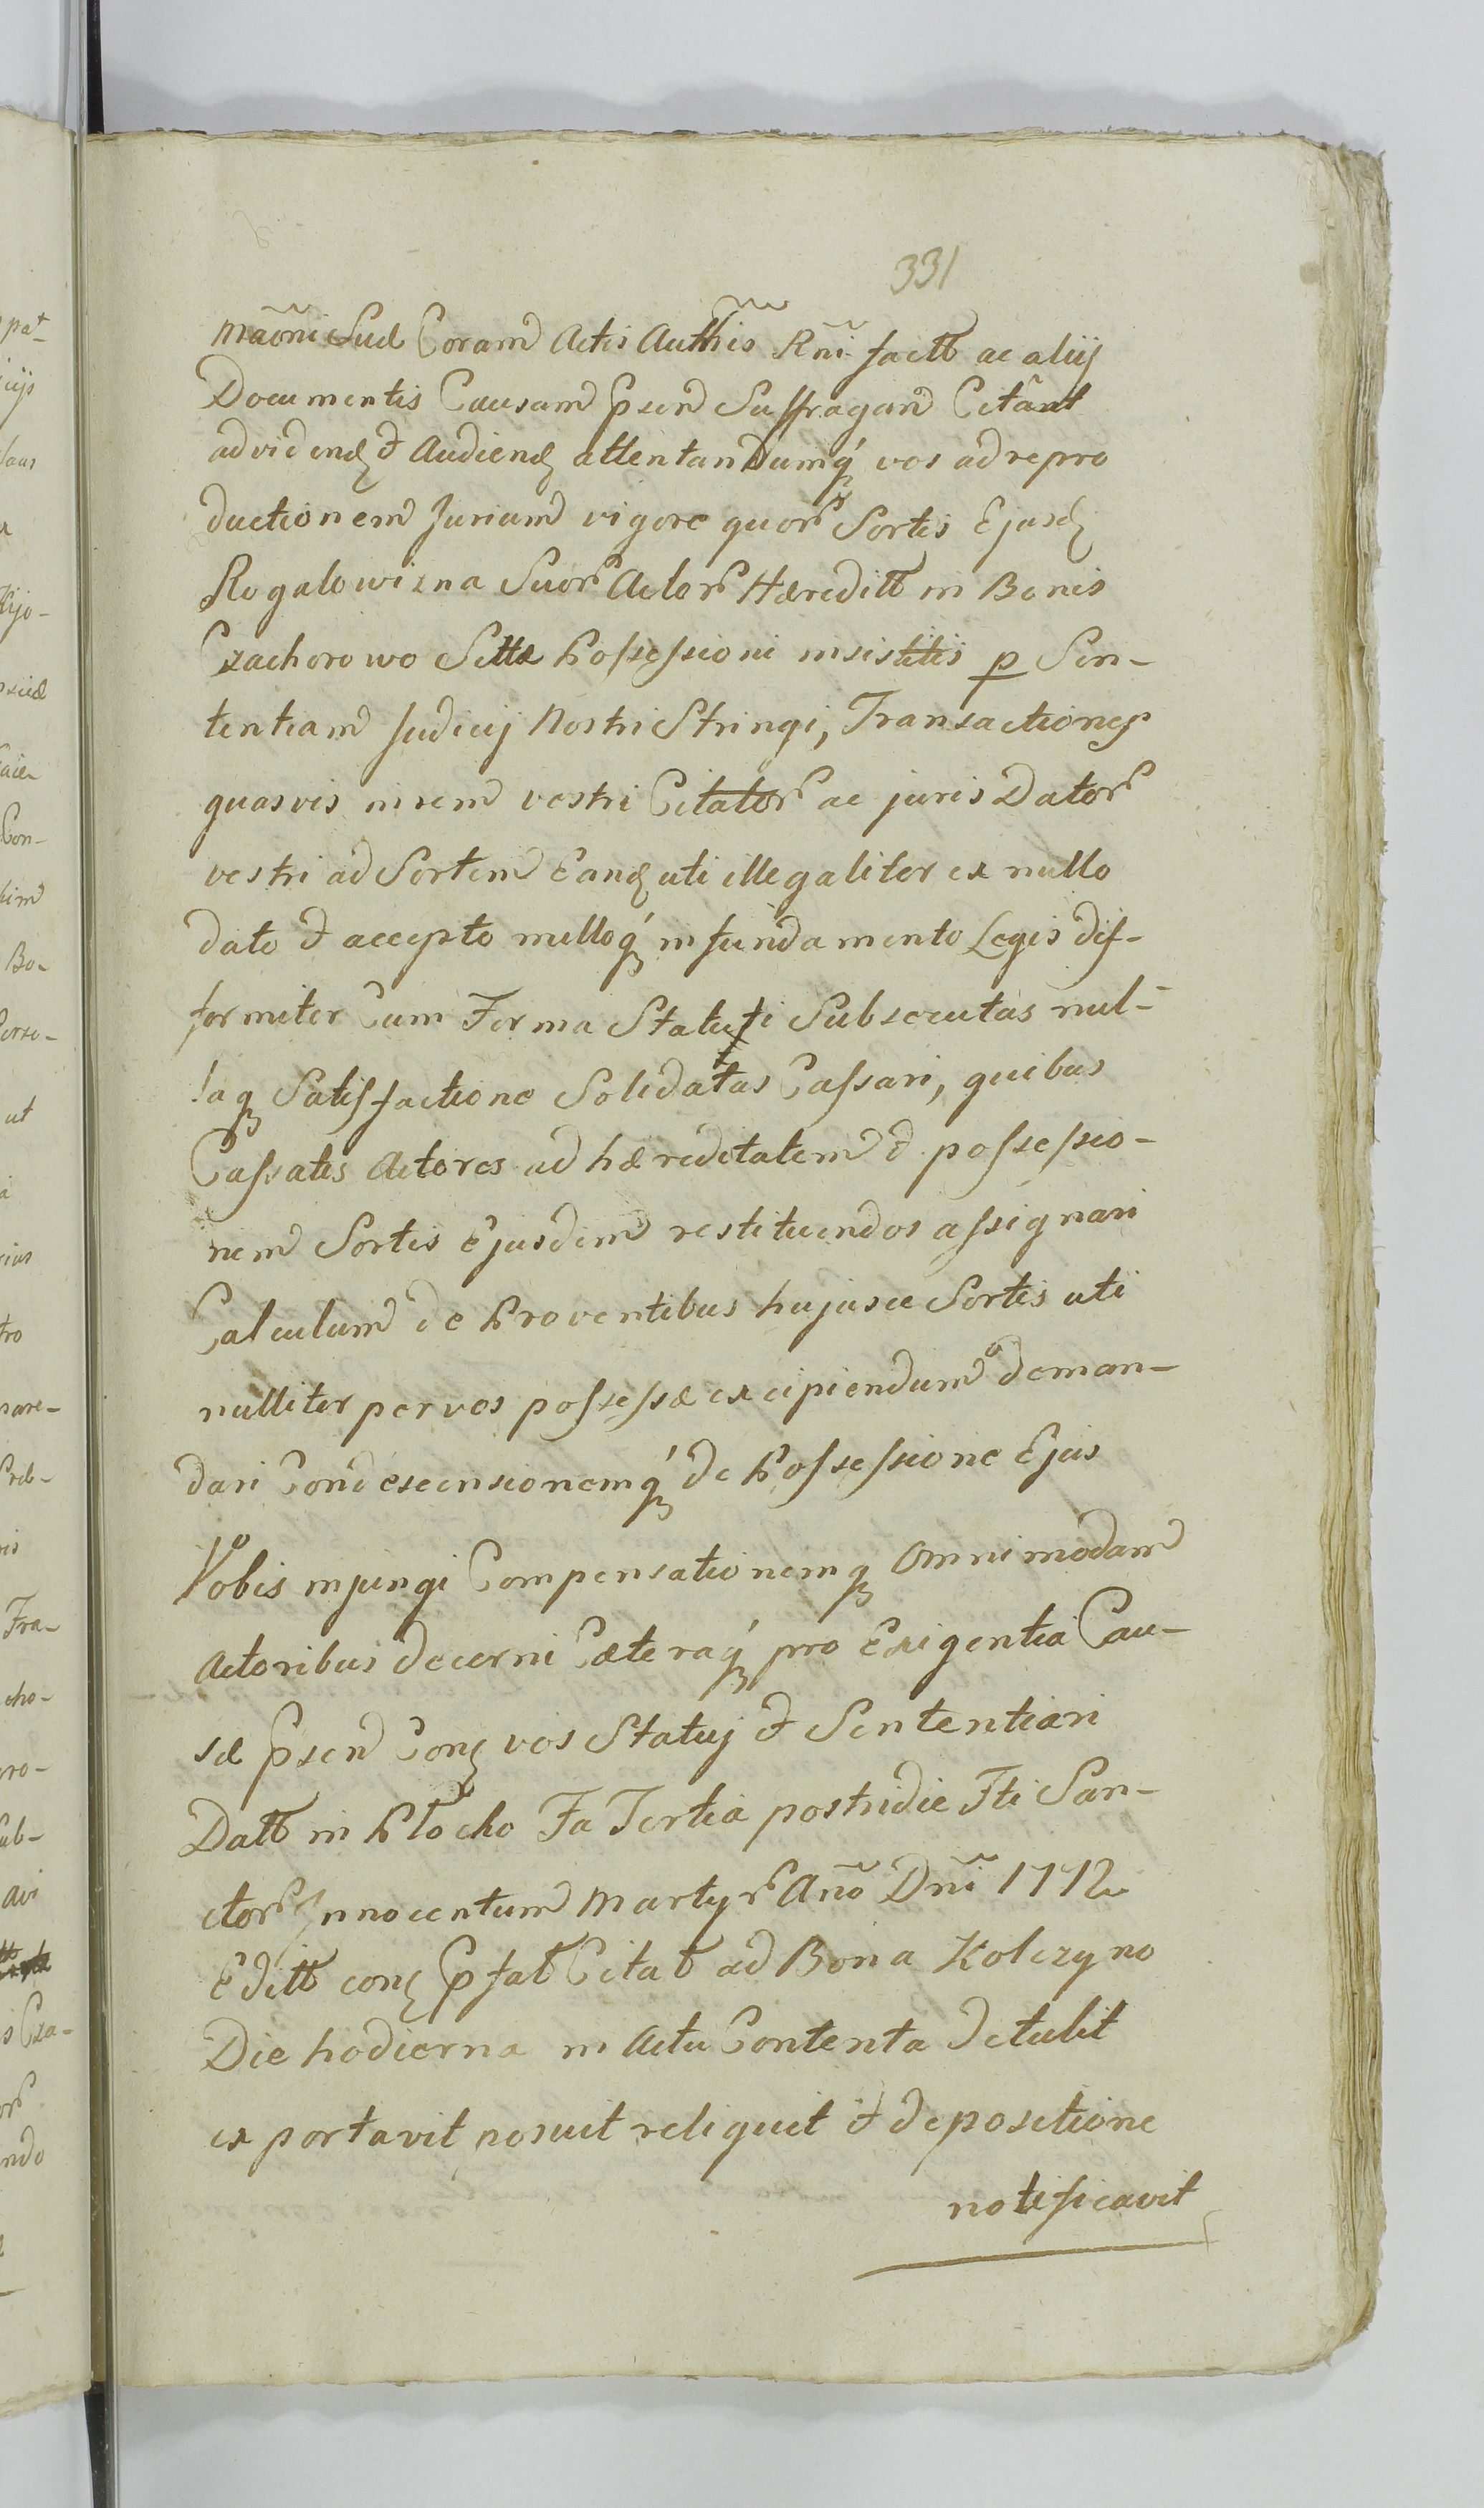 331
Maõni Suæ Coram Actis Autheis Rñi factt ac aliis
Documentis Causam Psen Suffragan Citãnt
ad videnđ & Audienđ attentandumq́ vos ad repro
ductionem Jurium vigore quor Sortis Ejusd
Rogalowizna Suor Actor Hæreditt in Bonis
Czachorowo Sittæ Possessioni insistitis p Sen-
tentiam Judicij Nostri Stringi, Transactiones
quasvis in rem vestri Citator ac juris Dator
vestri ad Sortem Eand uti illegaliter ex nullo
dato & accepto nulloq́ in fundamento Legis dif-
formiter Cum Forma Statuti Subsecutas nul-
laq Satisfactione Solidatas Cassari, quibus
Cassatis Actores ad hæreditatem & possessio-
nem Sortis Ejusdem restituendos assignari
Calculum de Proventibus hujusce Sortis uti
nulliter per vos possessæ excipiendum deman-
dari Condescensionemq́ de Possessione Ejus
Vobis injungi Compensationemq Omnimodam
Actoribus decerni Cæteraq́ pro Exigentia Cau-
sæ Psen Conq vos Statuj & Sententiari
Datt in Plocko Fa Tertia postridie Fti San-
ctor Innocentum Martyr Año Dñi 1772
Editt conq Pfat Citat ad Bona Kolczyno
Die hodierna in Actu Contenta detulit
exportavit posuit reliquit & depositione
notificavit